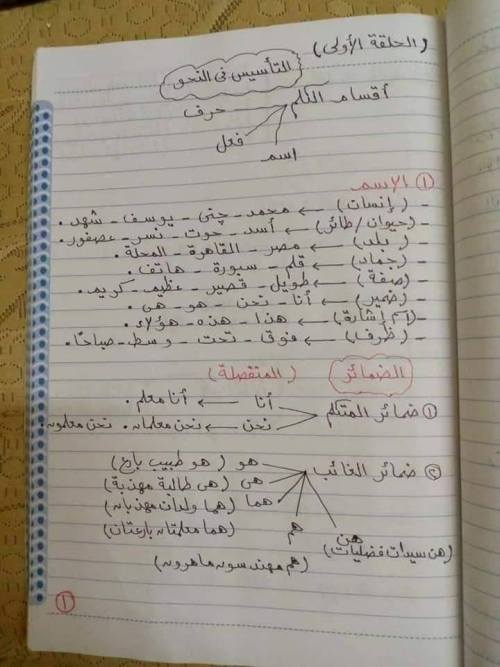 (الحلقة الأولى)
التأسيس فى النحو
أقسام الكلم
حرف
فعل
اسم
① الإسم
- (إنسان) ← محمد - چنى - يوسف - شهد.
- (حيوان/طائر) ← أسد - حوت - نسر - عصفور.
- (بلد) ← مصر - القاهرة - المحلة.
- (جماد) ← قلم - سبورة - هاتف.
- (صفة) ← طويل - قصير - عظيم - كريم.
- (ضمير) ← أنا - نحن - هو - هى.
- (اسم إشارة) ← هذا - هذه - هؤلاء.
- (ظرف) ← فوق - تحت - وسط - صباحًا.
الضمائر (المنفصلة)
① ضمائر المتكلم
أنا ← أنا معلم.
نحن ← نحن معلمان. نحن معلمون.
② ضمائر الغائب
هو (هو طبيب بارع)
هى (هى طالبة مهذبة)
هما (هما ولدان مهذبان)
(هما معلمتان بارعتان)
هم
(هم مهندسون ماهرون)
هن
(هن سيدات فضليات)
١